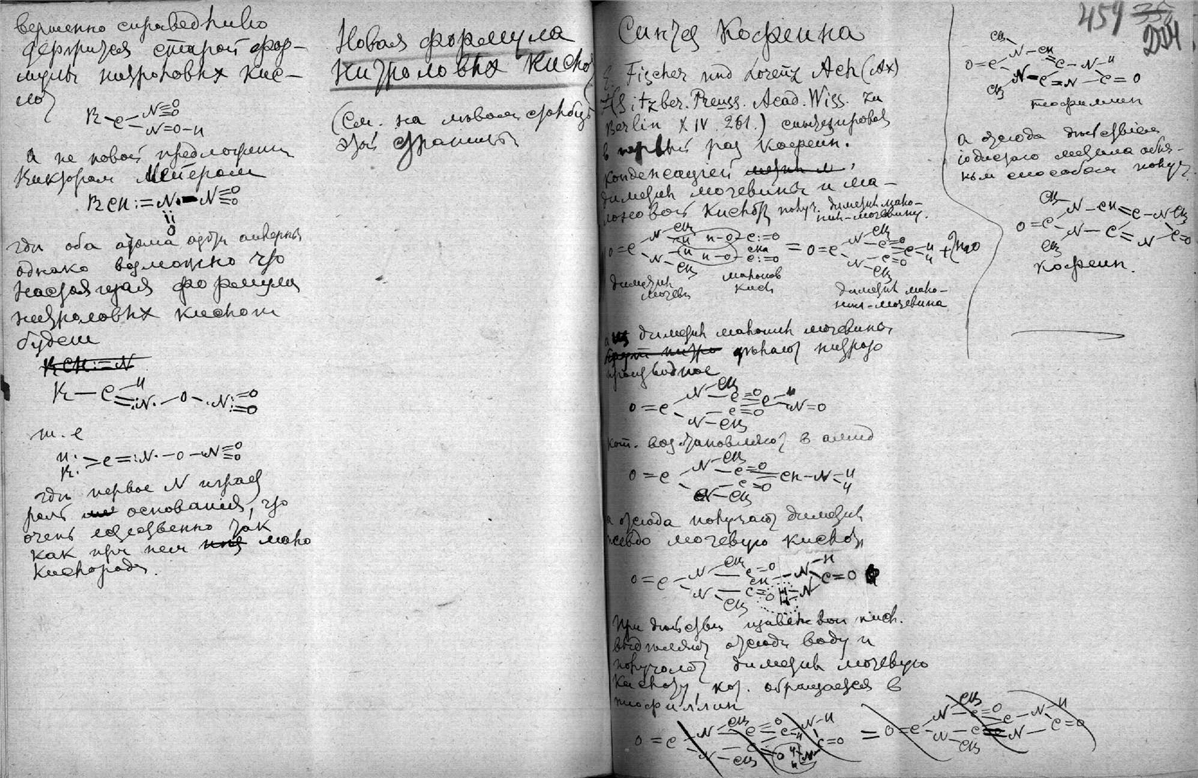 вершенно справедливо
держится старой фор-
мулы нитроловых кис-
лот
R C N=O=O
N=O-H
а не новой предложенн
Виктором Мейером
RCH:=N·-N=O=O
O
где оба атома
однако возможно что
настоящая формула
нитроловых кислот
будет
RCH:=N
R — C H =N· — O — ·N:=O=O
т. е
H: R: >C=:N· — O — N=O=O
где первое N играет
роль основания, что
очень естественно так
как при нем мало
кислорода.
Новая формула
нитроловых кислот
(См. на левом столбце
этой страницы
Синтез Кофеина
E. Fischer und Lorenz Ach (Ах)
(Sitzber. Preuss. Acad. Wiss. zu
Berlin XIV. 261.) синтезировал
в первый раз кофеин.
Конденсацией
диметил мочевины и ма-
лоновой кислоты получ. диметил мало-
нил-мочевину.
O=C N CH3 N CH3 H H-O C:=O CH2 C:=O = O=C N CH3 N CH3 C=O C C=O H H + H2O
диметил
мочев
малонов
кисл
диметил мало-
нил-мочевина
а из диметил малонил мочевины
делают нитрозо
производное
O=C N CH3 N CH3 C=O C C=O H N=O
кот. возстановляют в амид
O=C N CH3 N CH3 C=O C=O CH-N H H
а отсюда получают диметил
псевдо мочевую кислоту
O=C N CH3 N CH3 C=O CH C=O N H H H N C=O
При действии щавелевой кисл.
выделяют отсюда воду и
получают диметил мочевую
кислоту, кот. обращается в
теофиллин
O=C N CH3 N CH3 C=O C H C=O N-H H H N C=O = O=C N CH3 N CH3 C=O C C N H N C=O
459 35
204
O=C CH3 N CH CH3 N C C N H N C=O
теофиллин
а отсюда действием
иодистого метила обыч-
ным способом получ.
O=C CH3 N CH CH3 N C C NCH3 N CO
кофеин.